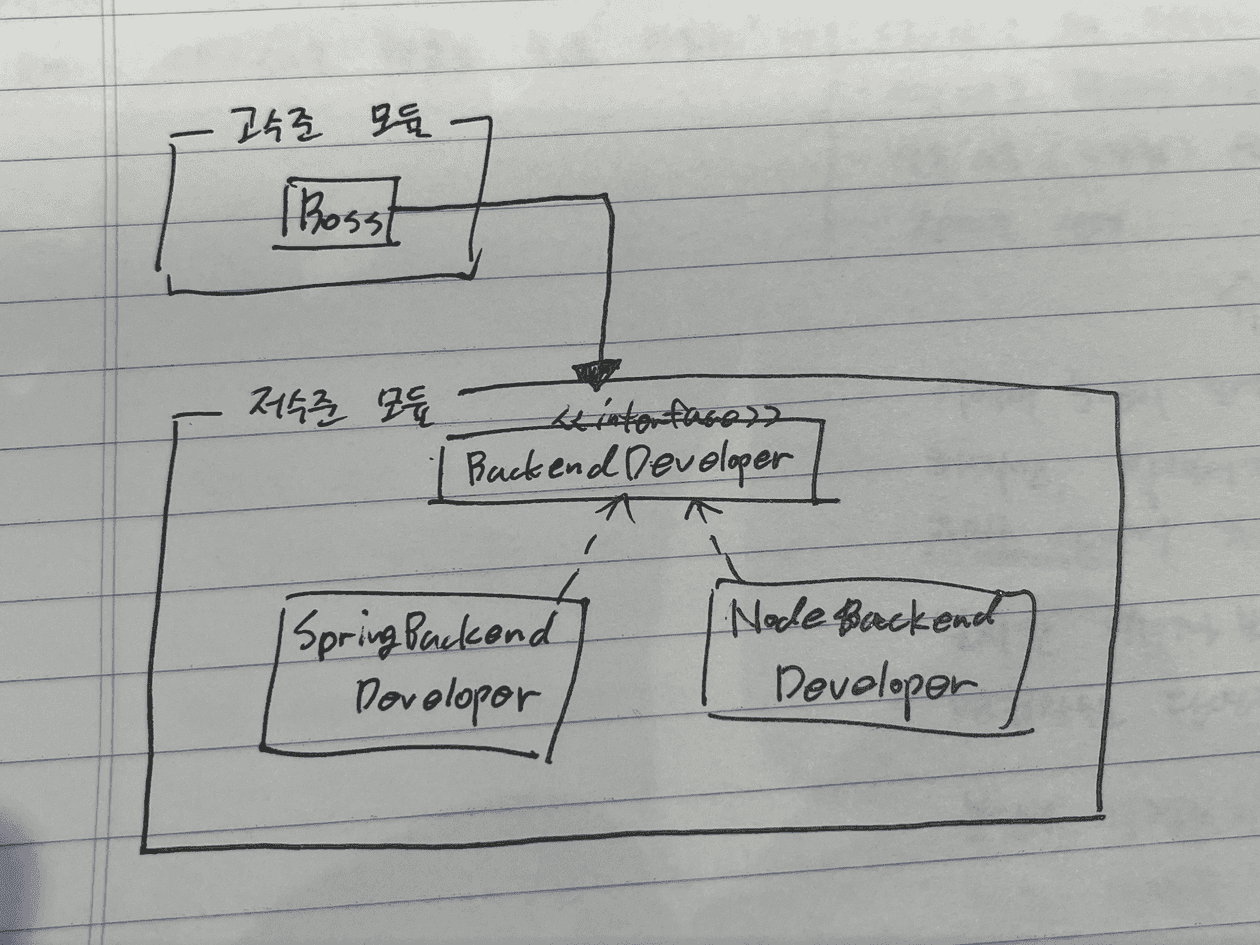 고수준 모듈
Boss
저수준 모듈
<<interface>>
BackendDeveloper
SpringBackend
Developer
NodeBackend
Developer